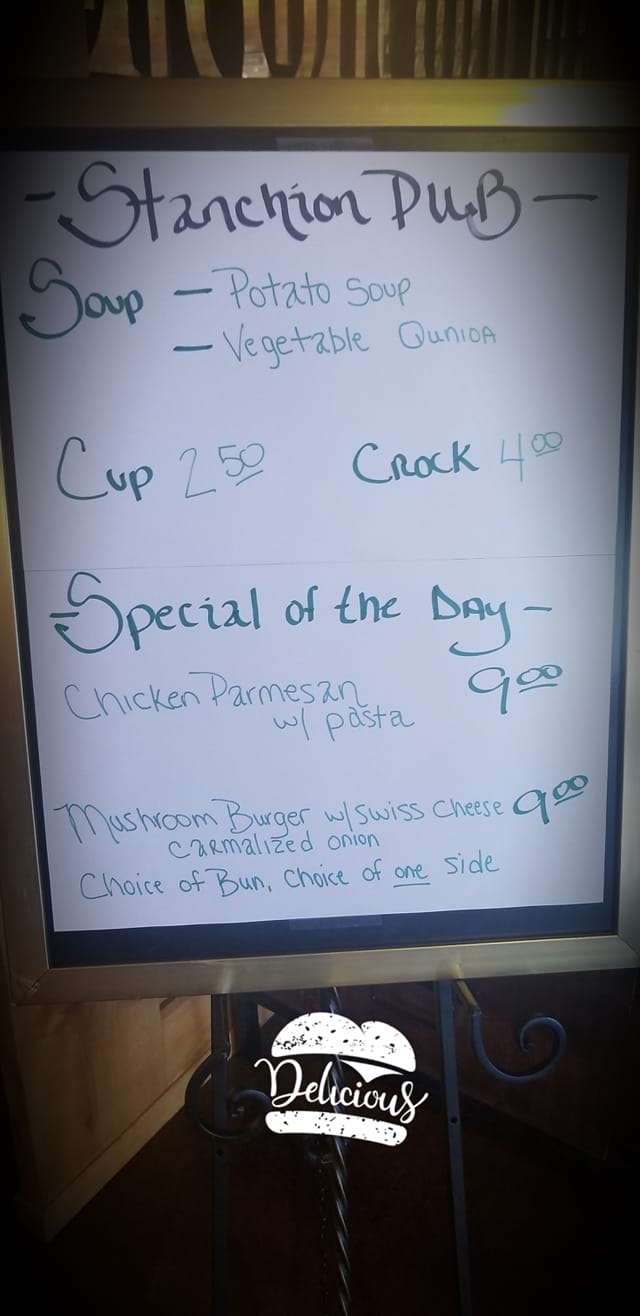 - Stanchion PUB -
Soup - Potato Soup
- Vegetable QuniOA
Cup 2 50 Crock 4 00
- Special of the Day -
Chicken Parmesan 9 00
w/ pasta
Mushroom Burger w/ Swiss Cheese 9 00
Carmalized onion
Choice of Bun, Choice of one side
Delicious